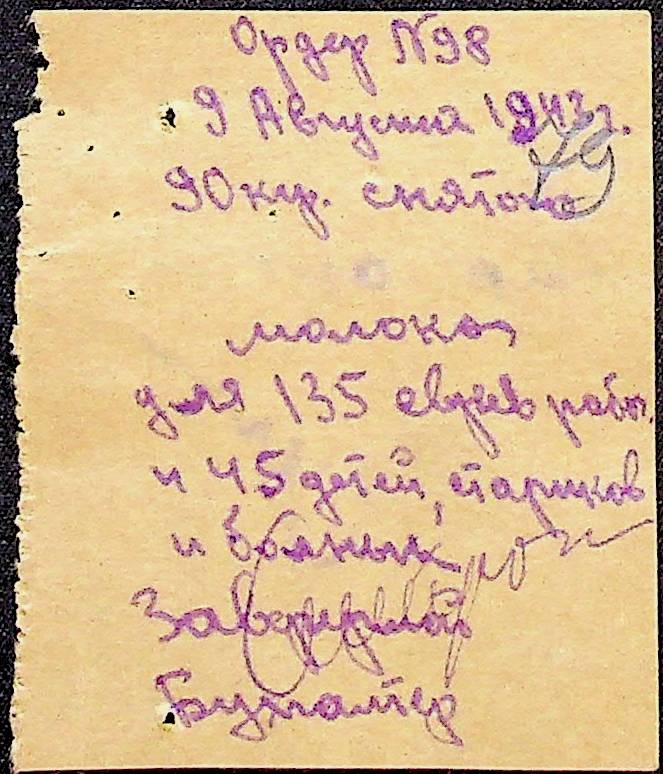 Ордер N98
9 Августа 1943г.
79
90 кгр. снятого
молока
для 135 евреев рабоч.
и 45 детей, стариков
и больных
Бухгалтер